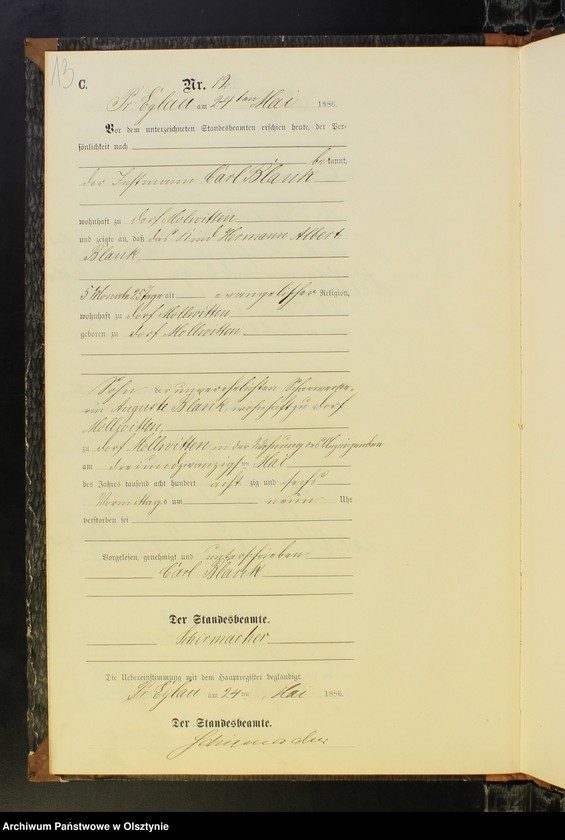 13
C.
Nr. 12
Pr. Eylau am 24ten Mai 1886.
Vor dem unterzeichneten Standesbeamten erschien heute, der Per-
sönlichkeit nach
bekannt,
der Instmann Carl Blank
wohnhaft zu Dorf Mollwitten
und zeigte an, daß das Kind Hermann Albert
Blank,
5 Monate 25 Tage alt evangelischer Religion,
wohnhaft zu Dorf Mollwitten
geboren zu Dorf Mollwitten
Sohn der unverehelichten Scharwerke-
rin Auguste Blank, wohnhaft zu Dorf
Mollwitten,
zu Dorf Mollwitten in der Wohnung des Anzeigenden
am dreiundzwanzigsten Mai
des Jahres tausend acht hundert acht zig und sechs
Vormittags um neun Uhr
verstorben sei
Vorgelesen, genehmigt und unterschrieben
Carl Blank
Der Standesbeamte.
Schirmacher
Die Uebereinstimmung mit dem Hauptregister beglaubigt.
Pr. Eylau am 24ten Mai 1886.
Der Standesbeamte.
Schirmacher
Archiwum Państwowe w Olsztynie